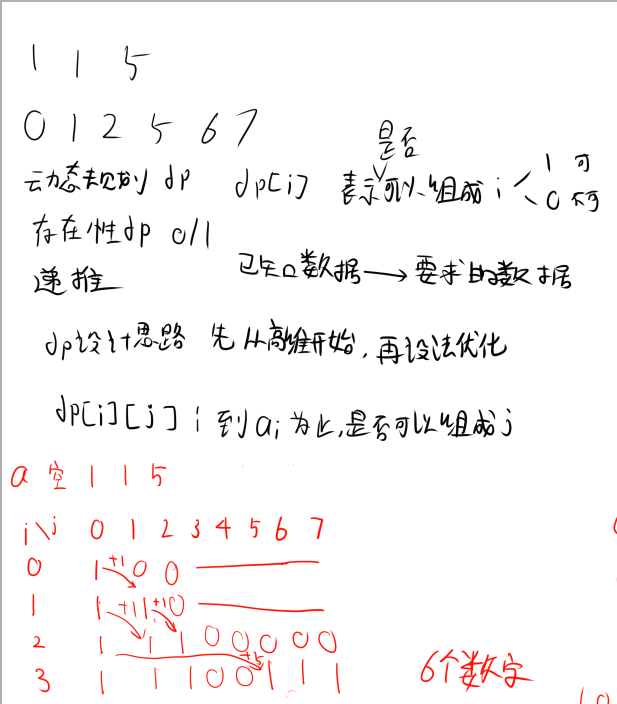 1 1 5
0 1 2 5 6 7
是否
动态规划 dp dp[i] 表示可以组成 i < 1 可 0 不可
存在性dp 0/1
递推 已知数据→要求的数据
dp设计思路 先从高维开始,再设法优化
dp[i][j] i 到 ai 为止,是否可以组成 j
a 空 1 1 5
i\j 0 1 2 3 4 5 6 7
0 1 +1 0 0
1 1 +1 1 +1 0
2 1 1 1 0 0 0 0 0
+5
3 1 1 1 0 0 1 1 1
6个数字